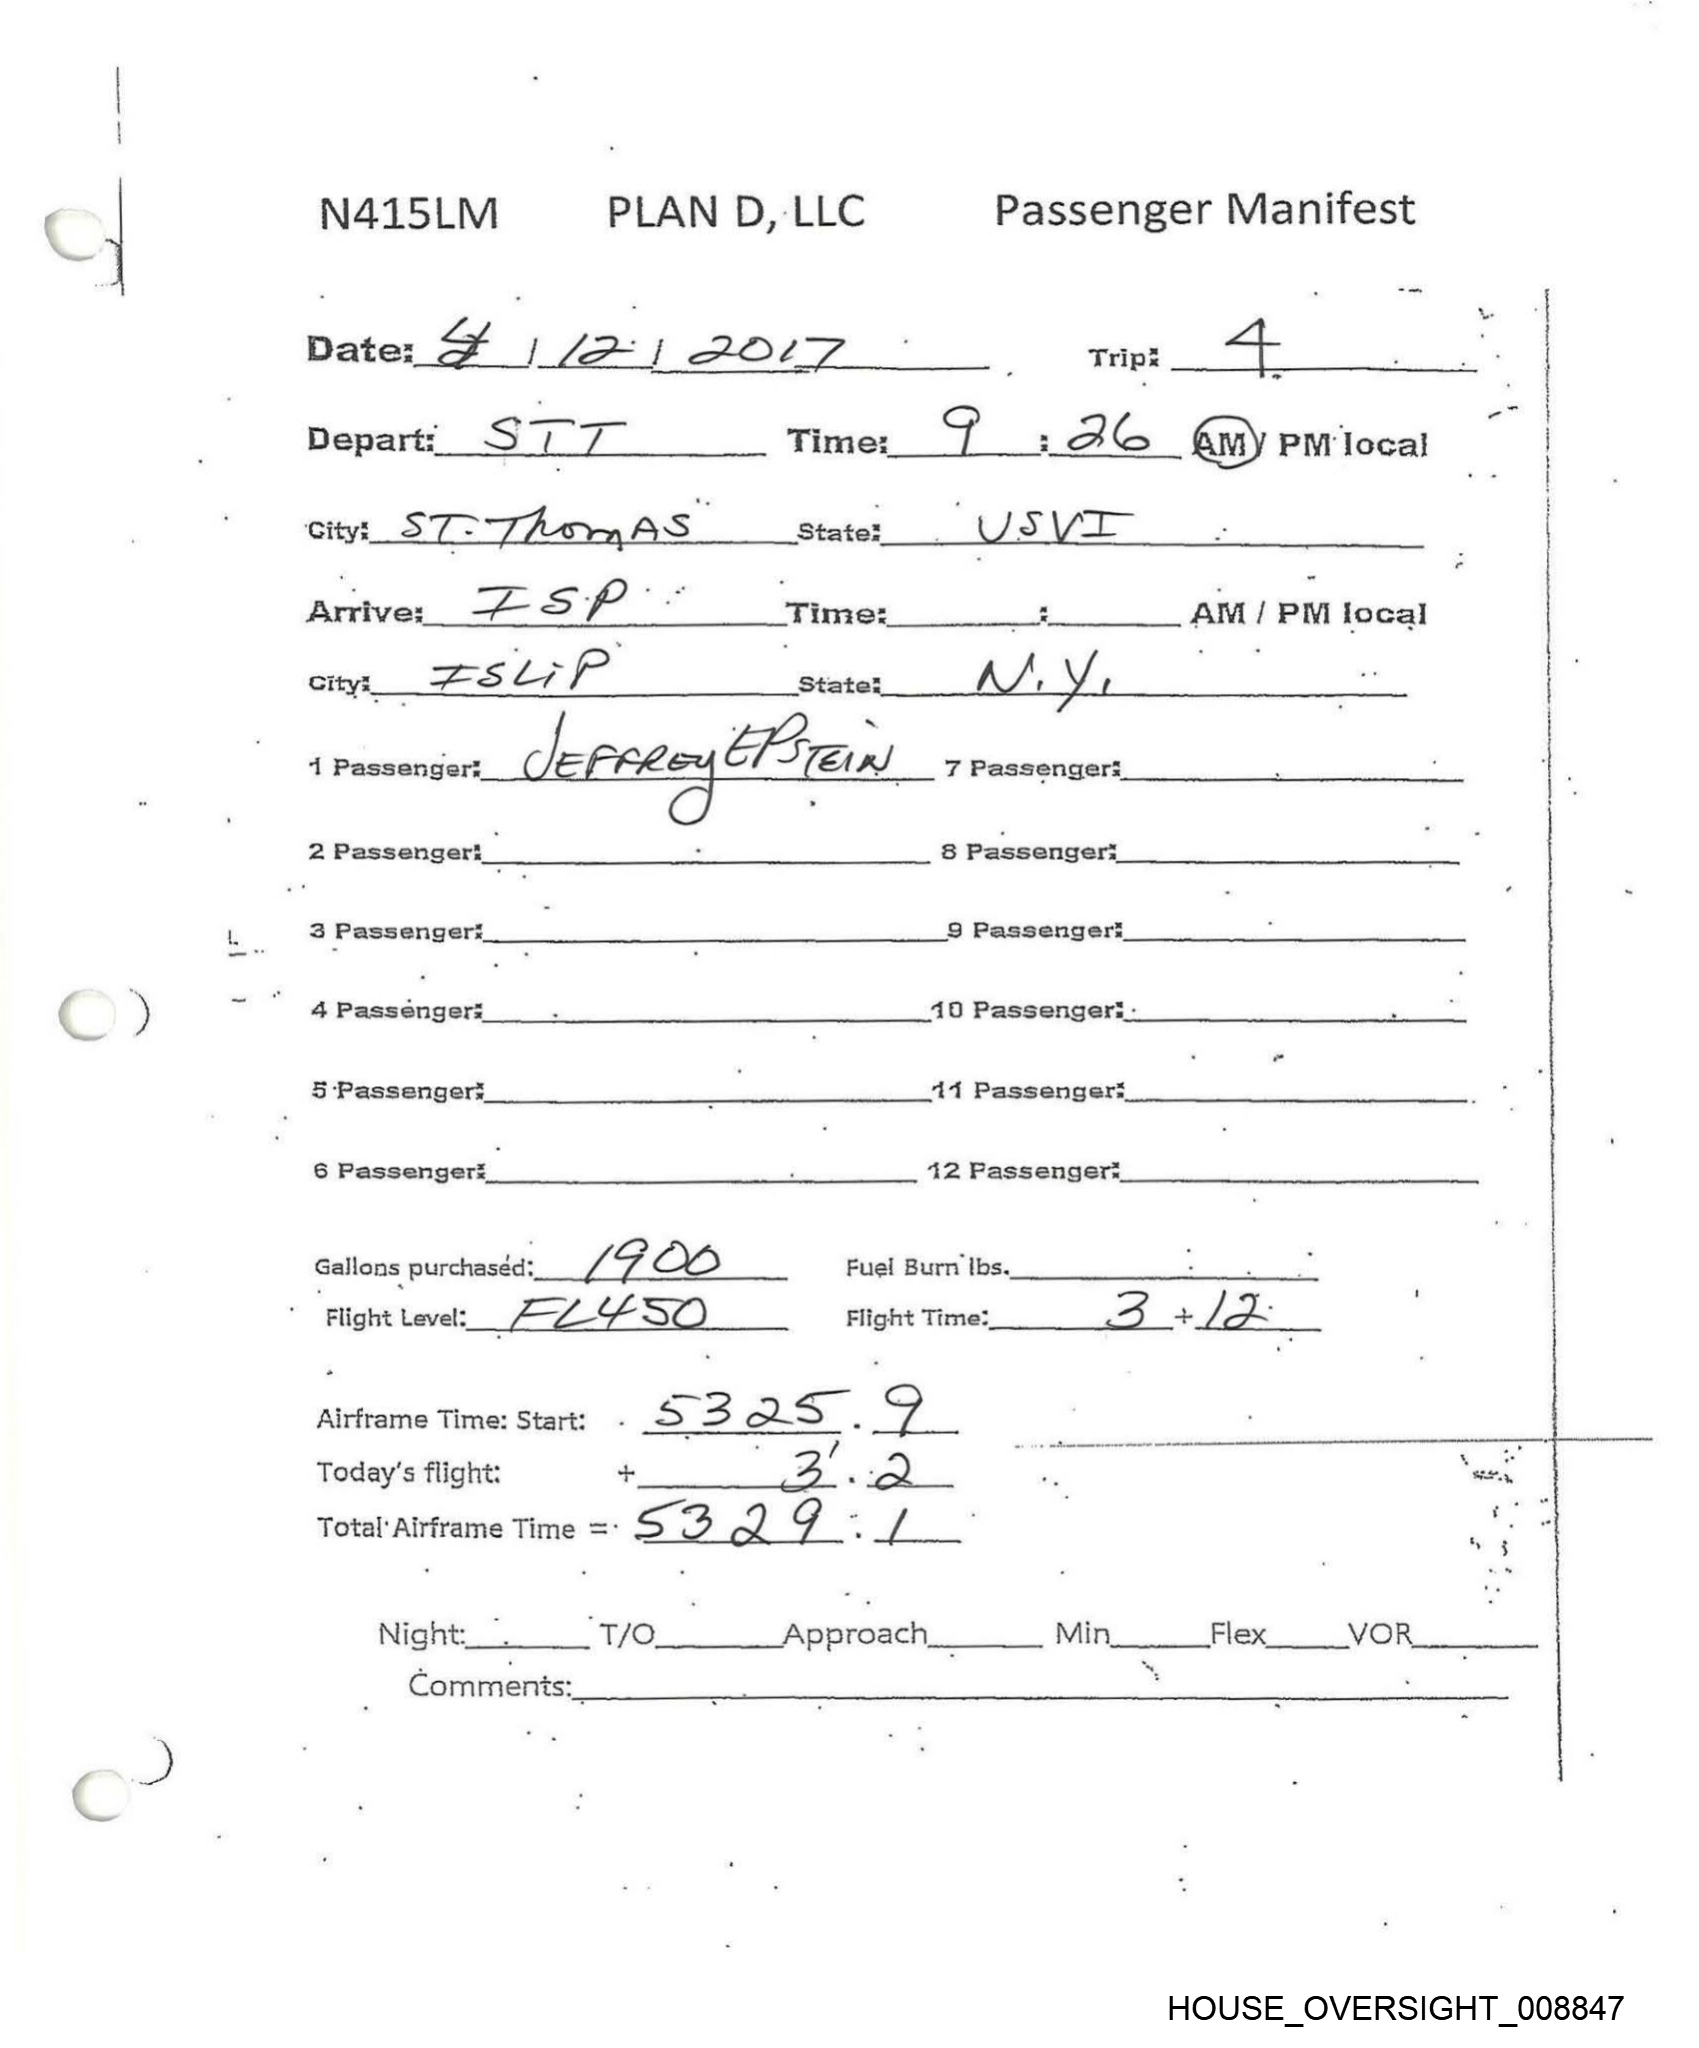 N415LM PLAN D, LLC Passenger Manifest
Date: 4 / 12 / 2017 Trip: 4
Depart: STT Time: 9 : 26 AM / PM local
City: ST. ThomAS State: USVI
Arrive: ISP Time: : AM / PM local
City: ISLiP State: N.Y.
1 Passenger: JEFFREy EPSTEIN 7 Passenger:
2 Passenger: 8 Passenger:
3 Passenger: 9 Passenger:
4 Passenger: 10 Passenger:
5 Passenger: 11 Passenger:
6 Passenger: 12 Passenger:
Gallons purchased: 1900 Fuel Burn lbs.
Flight Level: FL450 Flight Time: 3 + 12
Airframe Time: Start: 5325 . 9
Today's flight: + 3 . 2
Total Airframe Time = 5329 . 1
Night: T/O Approach Min Flex VOR
Comments:
HOUSE_OVERSIGHT_008847